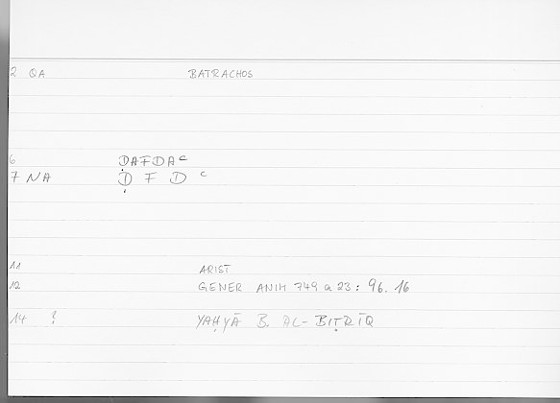 2 QA BATRACHOS
6 ḌAFDAᶜ
7 NA Ḍ F D ᶜ
11 ARIST
12 GENER ANIM 749 a 23: 96.16
14 ? YAḤYĀ B. AL-BIṬRĪQ